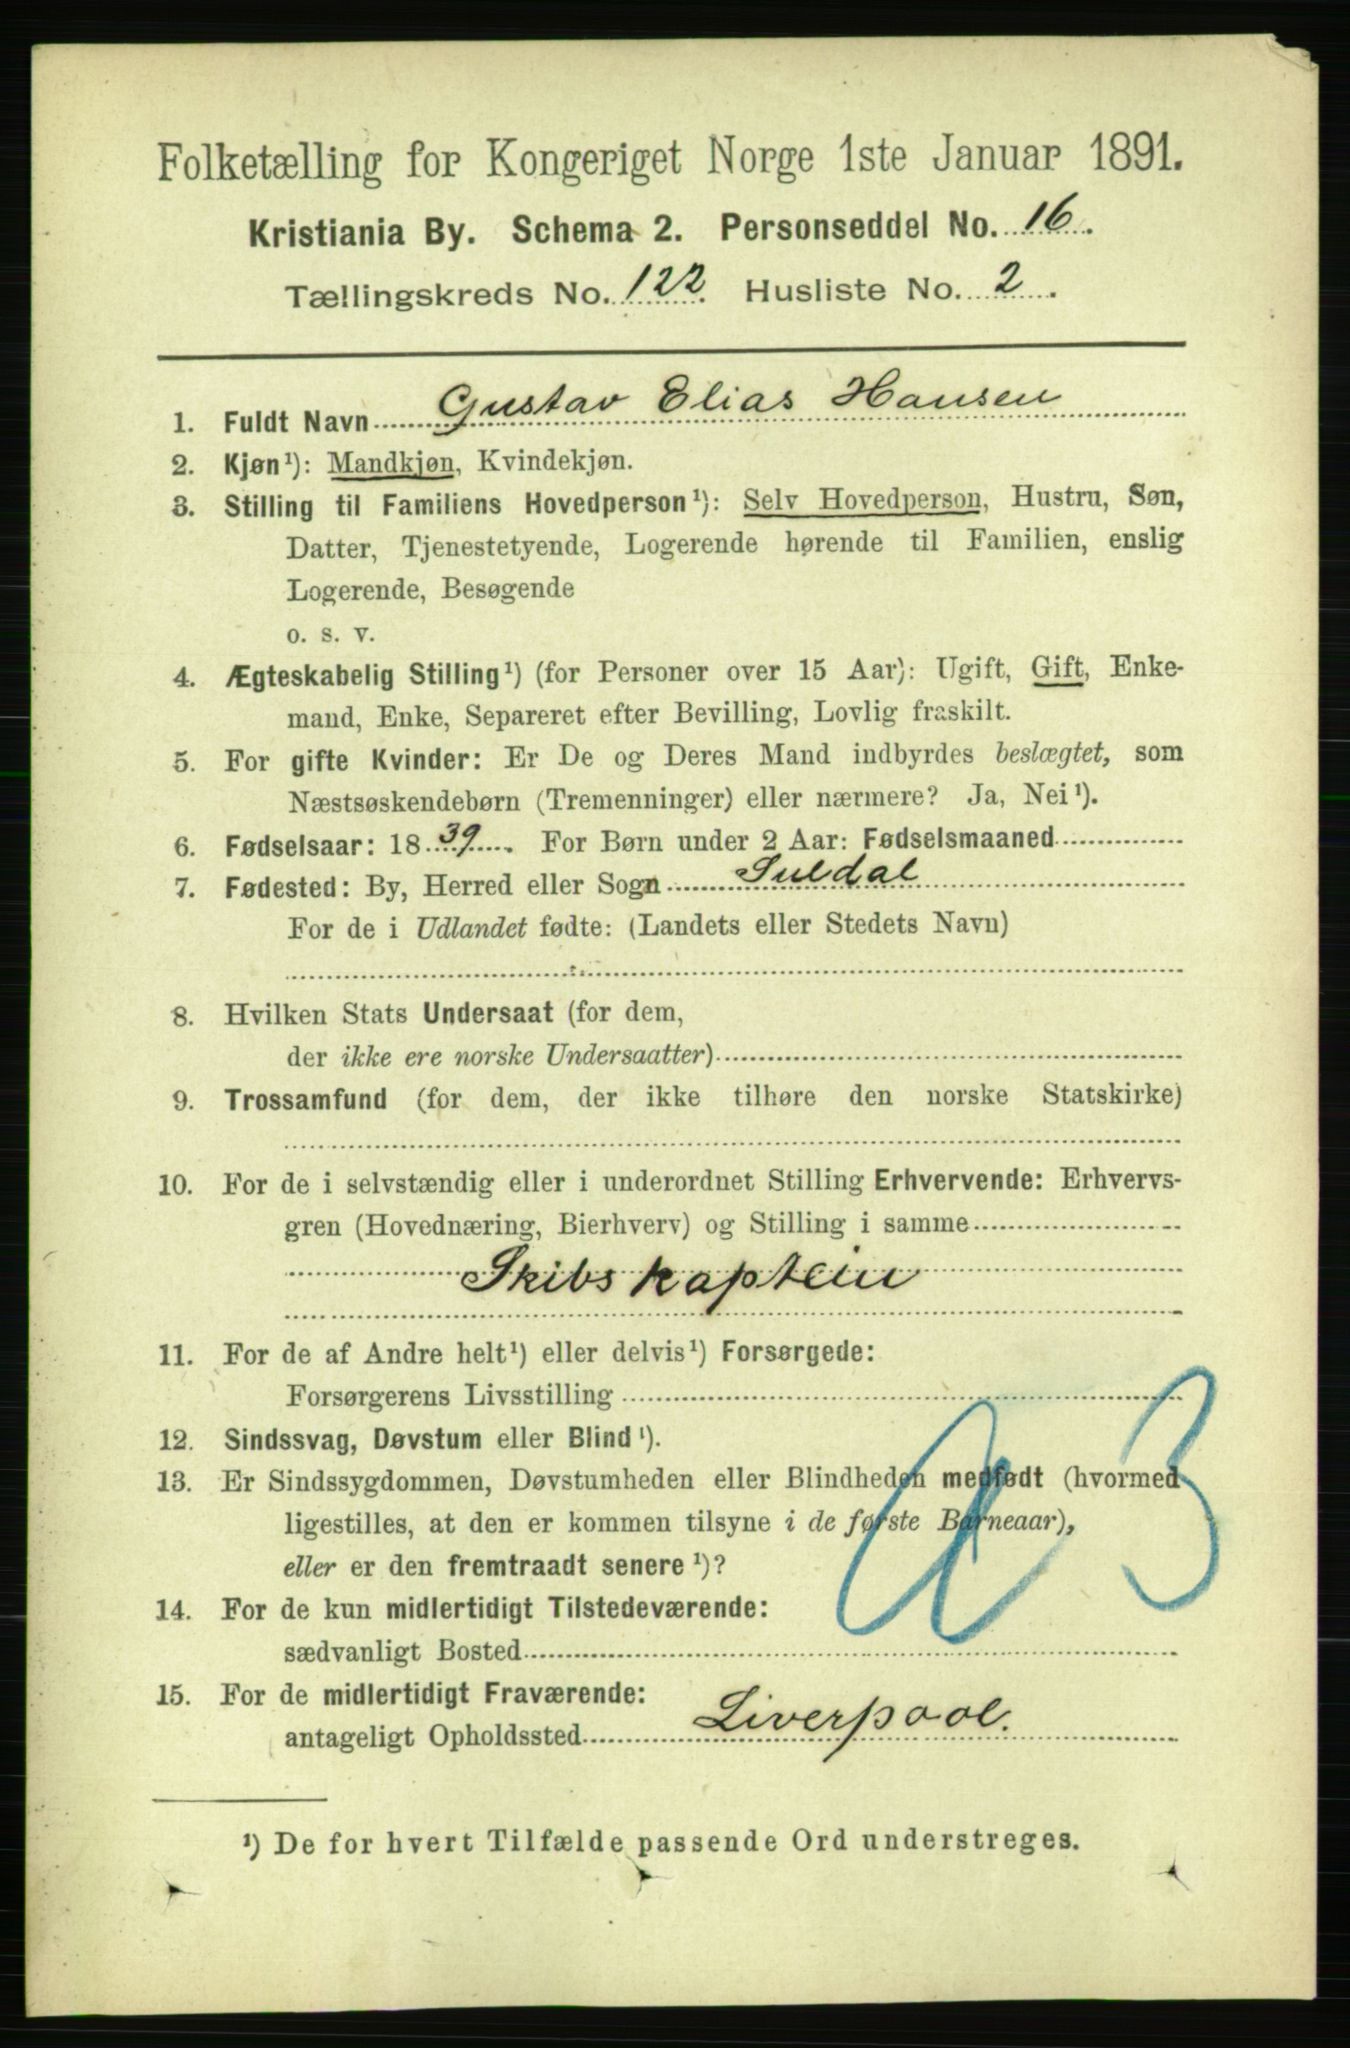 Folketælling for Kongeriget Norge 1ste Januar 1891.
Kristiania By. Schema 2. Personseddel No. 16.
Tællingskreds No. 122. Husliste No. 2.
1. Fuldt Navn Gustav Elias Hansen
2. Kjøn¹): Mandkjøn, Kvindekjøn.
3. Stilling til Familiens Hovedperson¹): Selv Hovedperson, Hustru, Søn,
Datter, Tjenestetyende, Logerende hørende til Familien, enslig
Logerende, Besøgende
o. s. v.
4. Ægteskabelig Stilling¹) (for Personer over 15 Aar): Ugift, Gift, Enke-
mand, Enke, Separeret efter Bevilling, Lovlig fraskilt.
5. For gifte Kvinder: Er De og Deres Mand indbyrdes beslægtet, som
Næstsøskendebørn (Tremenninger) eller nærmere? Ja, Nei¹).
6. Fødselsaar: 1839. For Børn under 2 Aar: Fødselsmaaned
7. Fødested: By, Herred eller Sogn Suldal
For de i Udlandet fødte: (Landets eller Stedets Navn)
8. Hvilken Stats Undersaat (for dem,
der ikke ere norske Undersaatter)
9. Trossamfund (for dem, der ikke tilhøre den norske Statskirke)
10. For de i selvstændig eller i underordnet Stilling Erhvervende: Erhvervs-
gren (Hovednæring, Bierhverv) og Stilling i samme
Skibskaptein
11. For de af Andre helt¹) eller delvis¹) Forsørgede:
Forsørgerens Livsstilling
12. Sindssvag, Døvstum eller Blind¹).
13. Er Sindssygdommen, Døvstumheden eller Blindheden medfødt (hvormed
ligestilles, at den er kommen tilsyne i de første Barneaar),
eller er den fremtraadt senere¹)?
14. For de kun midlertidigt Tilstedeværende:
sædvanligt Bosted
15. For de midlertidigt Fraværende:
antageligt Opholdssted Liverpool.
¹) De for hvert Tilfælde passende Ord understreges.